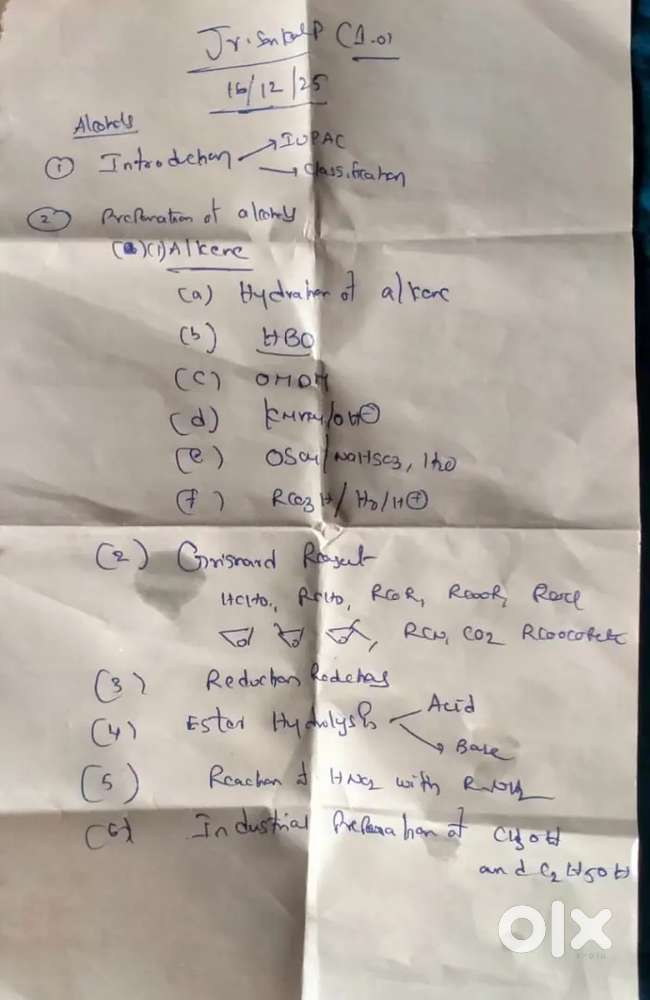 Jr. Sankalp (1.0)
16/12/25
Alcohols
① Introduction → IUPAC
→ Classification
② Preparation of alcohols
(1) Alkene
(a) Hydration of alkene
(b) HBO
(c) OMDM
(d) KMnO4/OH⊖
(e) OSO4/NaHSO3, H2O
(f) RCO3H/H2O/H⊕
(2) Grignard Reagent
HCHO, RCHO, RCOR, RCOOR, ROCl
RCN, CO2
(3) Reduction
(4) Ester Hydrolysis Acid
→ Base
(5) Reaction of HNO2 with RNH2
(6) Industrial Preparation of CH3OH
and C2H5OH
olx